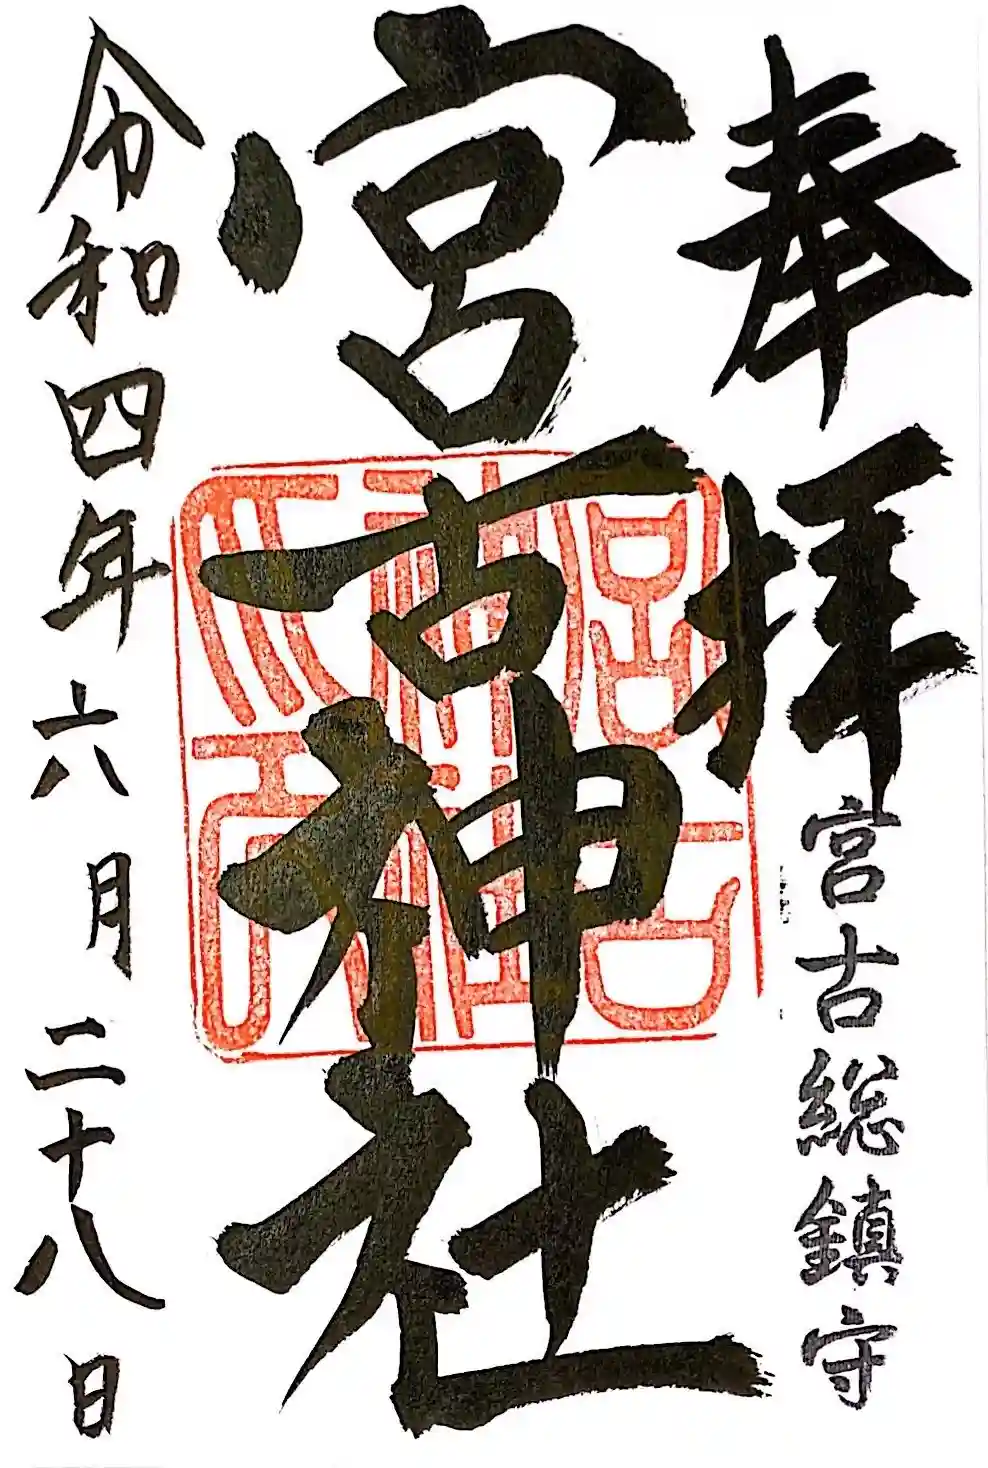 奉拝
宮古総鎮守
宮古神社
令和四年六月二十八日